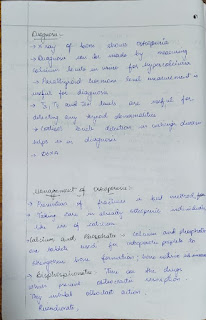 Diagnosis :-
→ X-ray of bone shows osteopenia
→ Diagnosis can be made by measuring
calcium levels in urine for hypercalciuria
→ Parathyroid hormone level measurement is
useful for diagnosis
→ T3, T4 and levels are useful for
detecting any thyroid abnormalities
→ Cortisol levels in cushings disease
helps in diagnosis
→ DEXA
Management of Osteoporosis :-
→ Prevention of fractures is best method for
→ Taking care in already osteoporotic individuals
the use of calcium
→ Calcium and Phosphate :- calcium and phosphate
are salts used for osteoporosis people to
bone formation ;
→ Bisphosphonates : This are the drugs
which prevent osteoclastic resorption.
They inhibit osteoclast action.